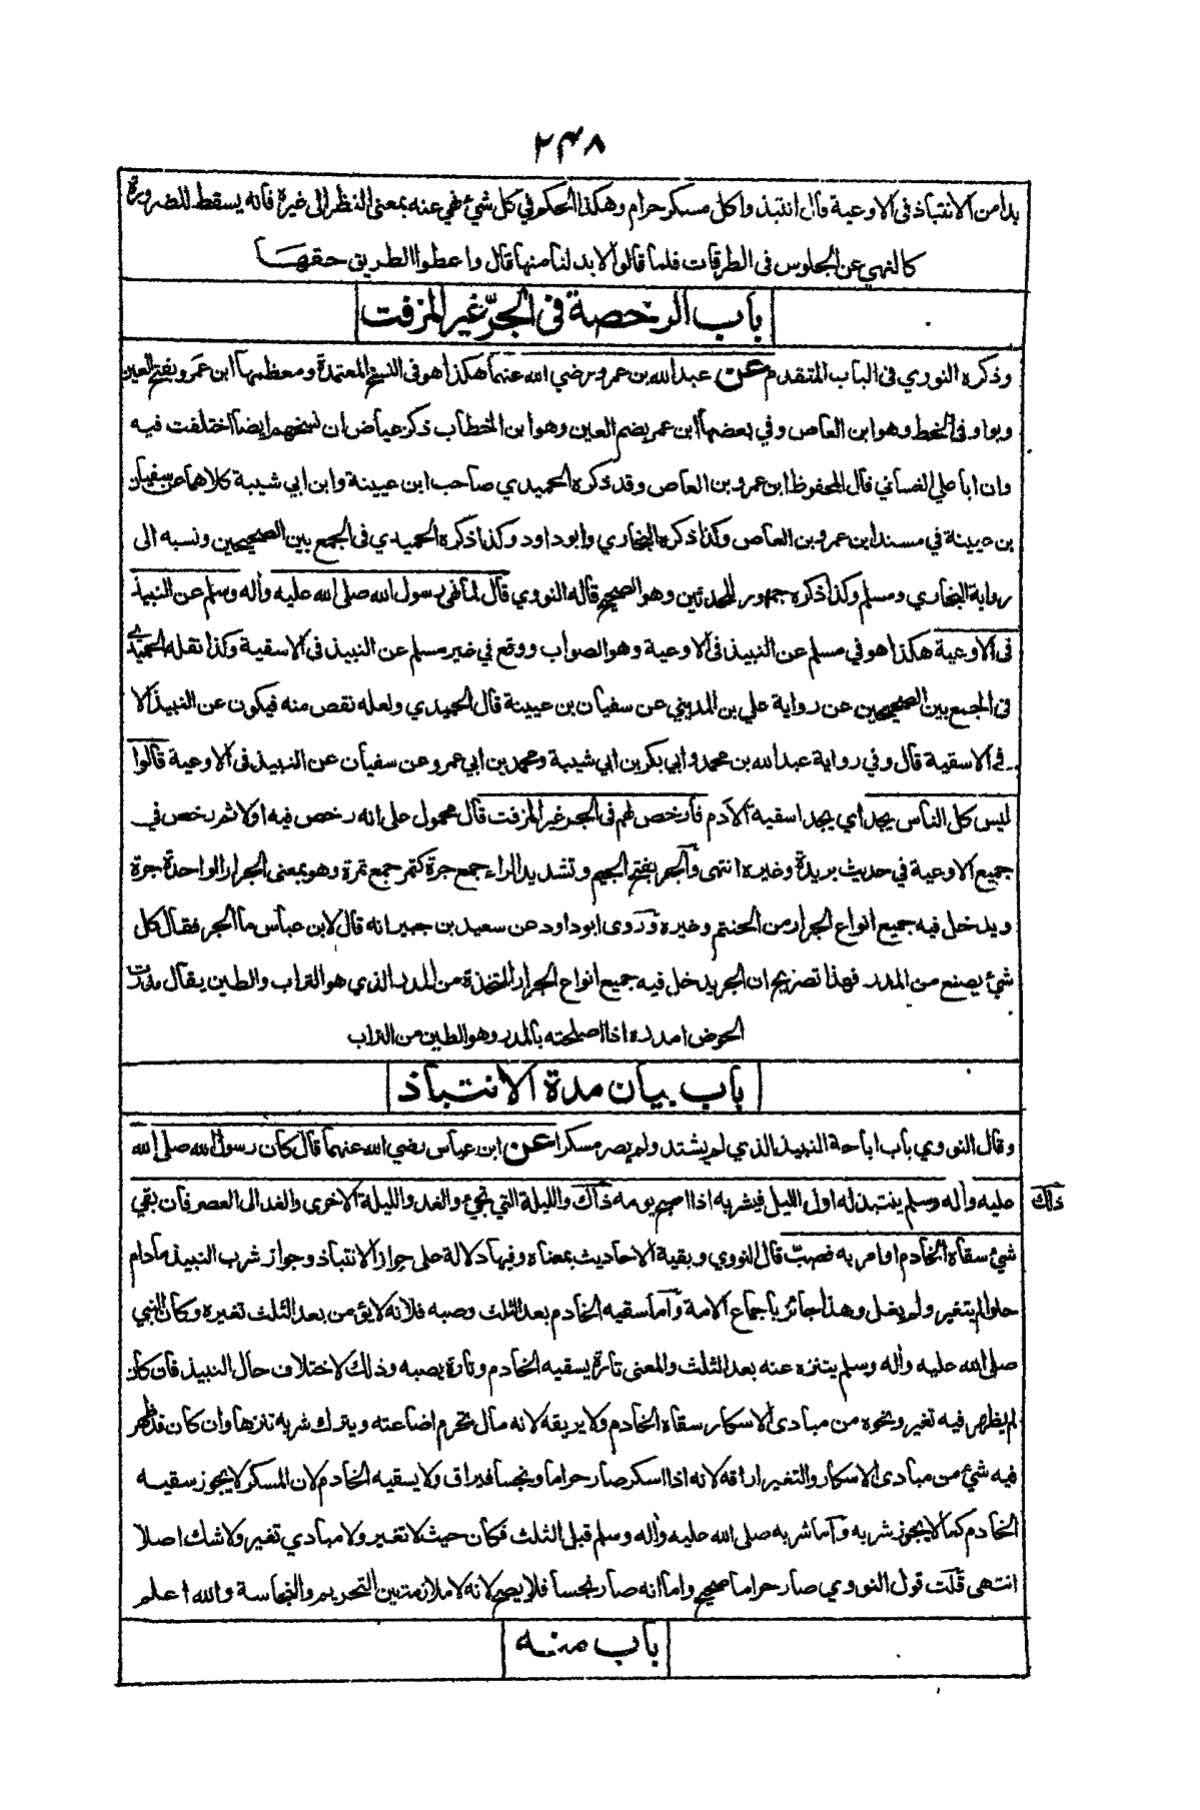 ٢٤٨
بدا من الانتباذ فى الاوعية قال انتبذوا وكل مسكر حرام وهكذا الحكم في كل شيئ نهي عنه بمعنى النظر الى غيرة فانه يسقط للضرورة
كالنهي عن الجلوس فى الطرقات فلما قالوا لا بد لنا منها قال واعطوا الطريق حقها
باب الرخصة فى الجرّ غير المزفت
وذكره النوري فى الباب المتقدم عن عبد الله بن عمرو رضي الله عنهما هكذا هو فى النسخ المعتمدة ومعظمها ابن عمرو بفتح العين
وبواو فى الخط وهو ابن العاص وفي بعضها ابن عمر بضم العين وهو ابن الخطاب ذكر عياض ان نسخهم ايضا اختلفت فيه
وان ابا علي الغساني قال المحفوظ ابن عمرو بن العاص وقد ذكره الحميدي صاحب ابن عيينة وابن ابي شيبة كلاهما عن سفيان
بن عيينة في مسند ابن عمرو بن العاص وكذا ذكره البخاري وابو داود وكذا ذكره الحميدي فى الجمع بين الصحيحين ونسبه الى
رواية البخاري ومسلم وكذا ذكره جمهور المحدثين وهو الصحيح قاله النووي قال لما نهى رسول الله صلى الله عليه وأله وسلم عن النبيذ
فى الاوعية هكذا هو في مسلم عن النبيذ فى الاوعية وهو الصواب ووقع في غير مسلم عن النبيذ فى الاسقية وكذا نقله الحميدي
فى الجمع بين الصحيحين عن رواية علي بن المديني عن سفيان بن عيينة قال الحميدي ولعله نقص منه فيكون عن النبيذ الا
فى الاسقية قال وفي رواية عبد الله بن محمد وابي بكر بن ابي شيبة ومحمد بن ابي عمرو عن سفيان عن النبيذ فى الاوعية قالوا
ليس كل الناس يجد اي يجد اسقية الأدم فأرخص لهم فى الجر غير المزفت قال محمول على انه رخص فيه اولا ثم رخص في
جميع الاوعية في حديث بريدة وغيره انتهى والجر بفتح الجيم وتشديد الراء جمع جرة كتمر جمع تمرة وهو بمعنى الجرار الواحدة جرة
ويدخل فيه جميع انواع الجرار من الحنتم وغيره وروى ابو داود عن سعيد بن جبير انه قال لابن عباس ما الجر فقال كل
شيئ يصنع من المدر فهذا تصريح ان الجر يدخل فيه جميع انواع الجرار المتخذة من المدر الذي هو التراب والطين يقال مدرت
الحوض امدره اذا اصلحته بالمدر وهو الطين من التراب
باب بيان مدة الانتباذ
وقال النووي باب اباحة النبيذ الذي لم يشتد ولم يصر مسكرا عن ابن عباس رضي الله عنهما قال كان رسول الله صلى الله
عليه وأله وسلم ينتبذ له اول الليل فيشربه اذا اصبح يومه ذاك والليلة التي تجيئ والغد والليلة الاخرى والغد الى العصر فان بقي
ذلك
شيئ سقاه الخادم او امر به فصبّ قال النووي وبقية الاحاديث بمعناه وفيها دلالة على جواز الانتباذ وجواز شرب النبيذ مادام
حلوا لم يتغير ولم يغل وهذا جائز باجماع الامة وأما سقيه الخادم بعد الثلث وصبه فلانه لا يؤمن بعد الثلث تغيره وكان النبي
صلى الله عليه وأله وسلم يتنزه عنه بعد الثلث والمعنى تارة يسقيه الخادم وتارة يصبه وذلك لاختلاف حال النبيذ فان كان
لم يظهر فيه تغير ونحوه من مبادى الاسكار سقاه الخادم ولا يريقه لانه مال تحرم اضاعته ويترك شربه تنزها وان كان قد ظهر
فيه شيئ من مبادى الاسكار والتغير اراقه لانه اذا اسكر صار حراما ونجسا فيراق ولا يسقيه الخادم لان المسكر لا يجوز سقيه
الخادم كما لا يجوز شربه وأما شربه صلى الله عليه وأله وسلم قبل الثلث فكان حيث لا تغير ولا مبادي تغير ولا شك اصلا
انتهى قلت قول النووي صار حراما صحيح واما انه صار نجسا فلا يصح لانه لا ملازمة بين التحريم والنجاسة والله اعلم
باب منه